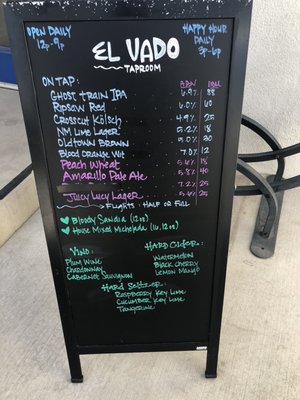 OPEN DAILY
12p-9p
HAPPY HOUR
DAILY
3p-6p
EL VADO
TAPROOM
ON TAP: ABV IBU
GHOST TRAIN IPA 6.9% 88
RIPSAW RED 6.0% 60
CROSSCUT KÖLSCH 4.9% 25
NM LIME LAGER 5.2% 18
OLDTOWN BROWN 5.2% 30
BLOOD ORANGE WIT 7.0% 12
PEACH WHEAT 5.6% 15
AMARILLO PALE ALE 5.8% 40
7.2% 25
JUICY LUCY LAGER 5.4% 25
FLIGHTS: HALF OR FULL
BLOODY SANDIA (12oz)
HOUSE MIXED MICHELADA (16, 12oz)
VINO:
PLUM WINE
CHARDONNAY
CABERNET SAUVIGNON
HARD CIDER:
WATERMELON
BLACK CHERRY
LEMON MANGO
HARD SELTZER:
RASPBERRY KEY LIME
CUCUMBER KEY LIME
TANGERINE